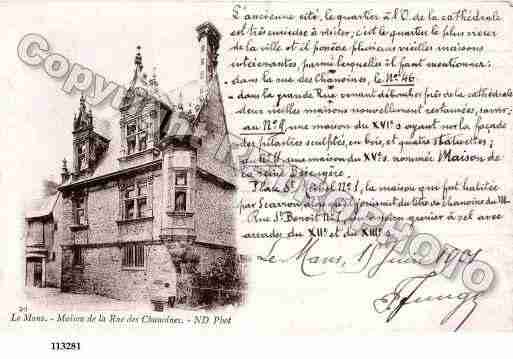 L'ancienne cité, le quartier à l'O. de la cathédrale
est très curieuse à visiter; c'est le quartier le plus
de la ville et il possède plusieurs vieilles maisons
intéressantes parmi lesquelles il faut mentionner:
- dans la rue des Chanoines, le No 46
- dans la grande Rue venant déboucher près de la cathédrale
deux vieilles maisons nouvellement restaurées, savoir:
au No 9, une maison du XVIe s ayant sur la façade
des pilastres sculptés, en bois, et quatre statuettes;
une maison du XVe s. nommée Maison de
la reine Bérengère.
Place St Michel No 1, la maison que fut habitée
par Scarron du titre de chanoine du Mans
Rue St Benoit grenier à sel avec
arcades du XIIe et du XIIIe s
Le Mans, Juin 1901
20
Le Mans. - Maison de la Rue des Chanoines. - ND Phot
Copyright PHOTO
113281